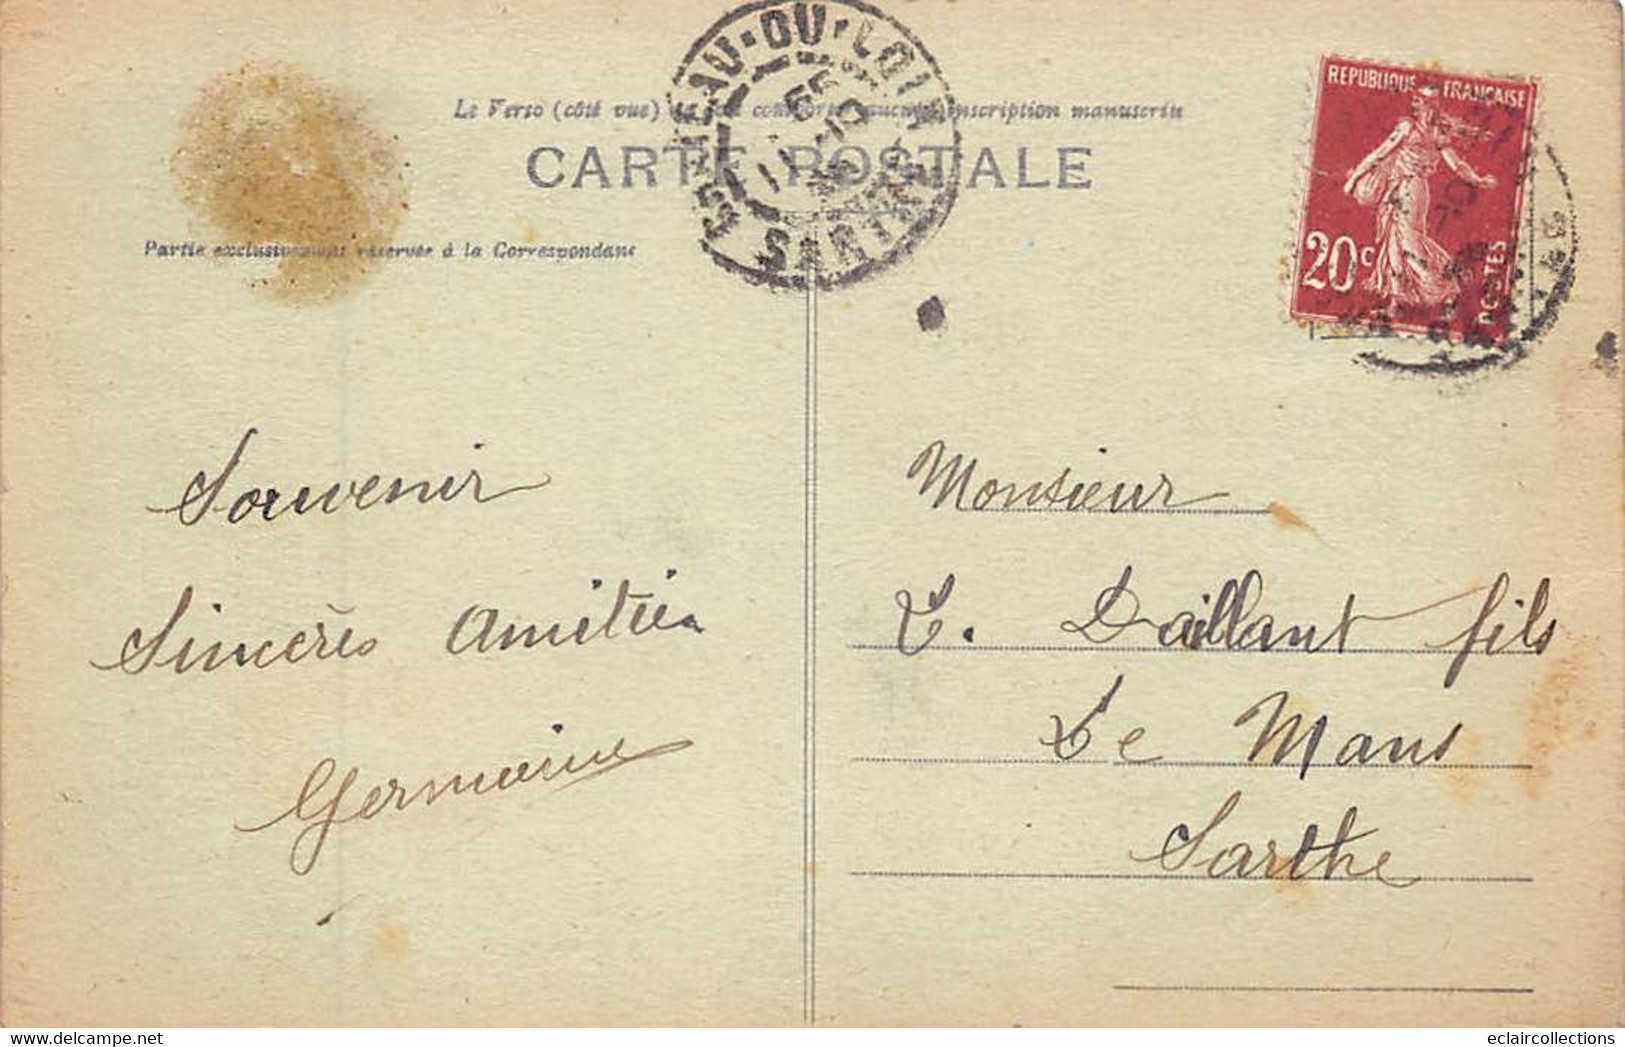 Le Verso (côté vue) inscription manuscrite
CARTE POSTALE
Partie exclusivement réservée à la Correspondance
EAU-DU-LOIR
SARTHE
REPUBLIQUE FRANÇAISE
20c
POSTES
Souvenir
Sincères Amitiés
Germaine
Monsieur
Daillant fils
Le Mans
Sarthe
www.delcampe.net
eclaircollections